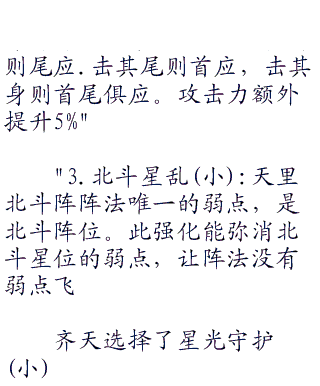 则尾应.击其尾则首应，击其
身则首尾俱应。攻击力额外
提升5%"
"3.北斗星乱(小):天里
北斗阵阵法唯一的弱点，是
北斗阵位。此强化能弥消北
斗星位的弱点，让阵法没有
弱点飞
齐天选择了星光守护
(小)